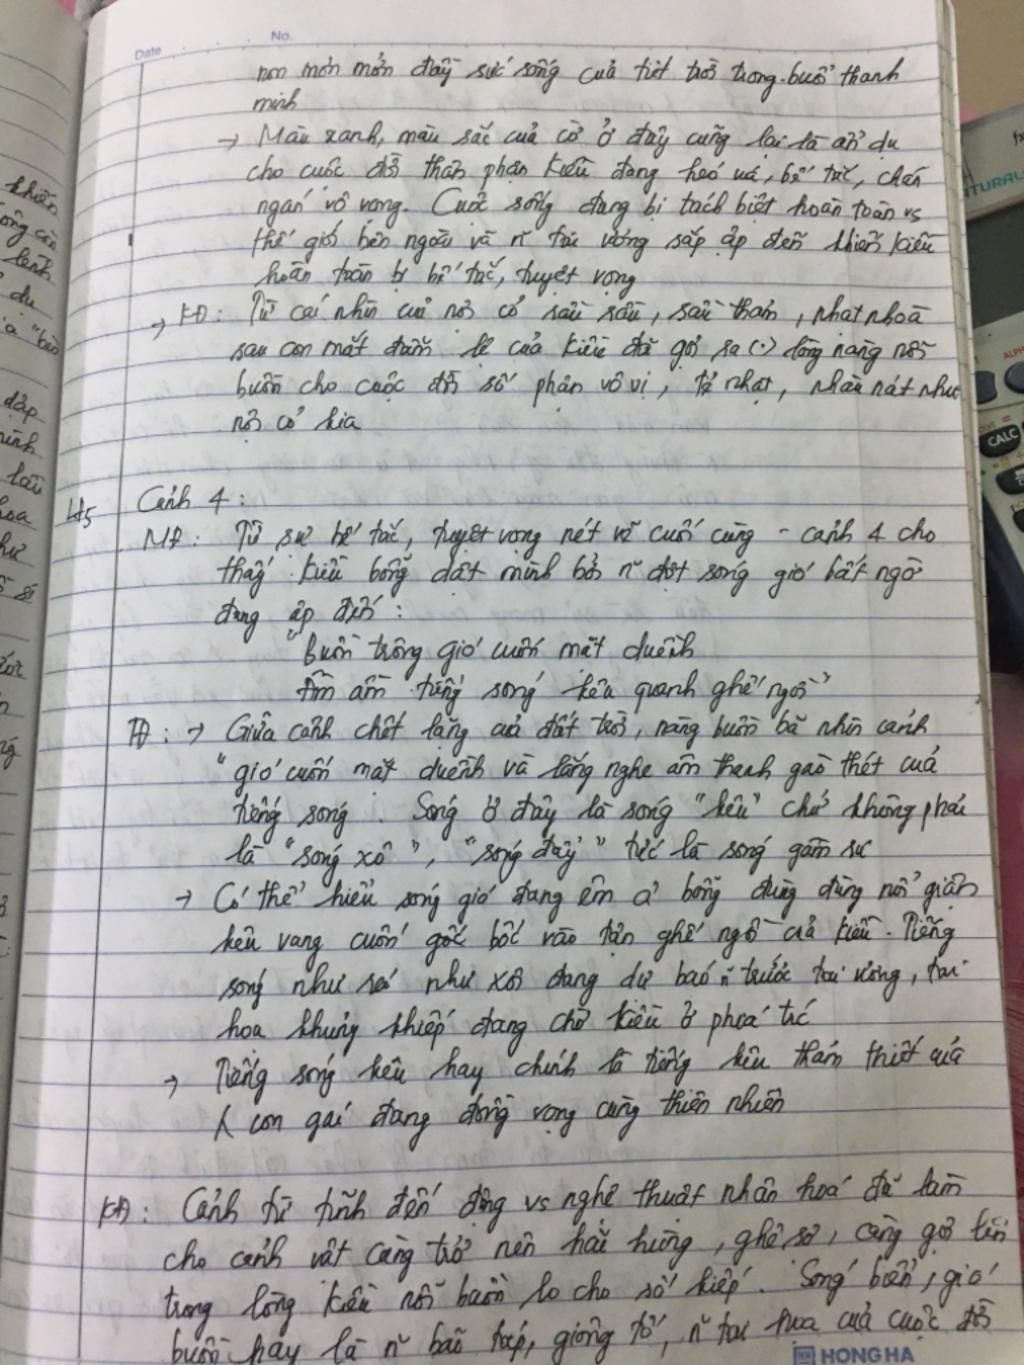 Date No.
non mơn mởn đầy sức sống của tiết trời trong buổi thanh
minh
→ Màu xanh, màu sắc của cỏ ở đây cũng lại là ẩn dụ
cho cuộc đời thân phận Kiều đang héo úa, bế tắc, chán
ngán vô vọng. Cuộc sống đang bị tách biệt hoàn toàn vs
thế giới bên ngoài và n~ tai ương sắp ập đến khiến Kiều
hoàn toàn bị bế tắc, tuyệt vọng
→ KĐ: Từ cái nhìn cui nội cỏ sầu sầu, sầu thảm, nhạt nhoà
sau con mắt đẫm lệ của Kiều đã gợi ra (.) lòng nàng nỗi
buồn cho cuộc đời số phận vô vị, tẻ nhạt, nhàu nát như
nội cỏ kia
Lđ5 Cảnh 4:
MĐ: Từ sự bế tắc, tuyệt vọng nét vẽ cuối cùng - cảnh 4 cho
thấy Kiều bỗng dật mình bởi n~ đợt sóng gió bất ngờ
đang ập đến:
"Buồn trông gió cuốn mặt duềnh
Ầm ầm tiếng sóng kêu quanh ghế ngồi"
TĐ: → Giữa cảnh chết lặng của đất trời, nàng buồn bã nhìn cảnh
"gió cuốn mặt duềnh và lắng nghe âm thanh gào thét của
tiếng sóng. Sóng ở đây là sóng "kêu" chứ không phải
là "sóng xô", "sóng đẩy" tức là sóng gầm sự
→ Có thể hiểu sóng gió đang êm ả bỗng đùng đùng nổi giận
kêu vang cuốn gốc bốc vào tận ghế ngồi của Kiều. Tiếng
sóng như xé như xôi đang dự báo n~ trước tai ương, tai
hoạ khủng khiếp đang chờ Kiều ở phía trc
→ Tiếng sóng kêu hay chính là tiếng kêu thảm thiết của
người con gái đang đồng vọng cùng thiên nhiên
KĐ: Cảnh từ tĩnh đến động vs nghệ thuật nhân hoá đã làm
cho cảnh vật càng trở nên hãi hùng, ghê sợ, càng gợi lên
trong lòng Kiều nỗi buồn lo cho số kiếp. Sóng biển, gió
buồn hay là n~ bão táp, giông tố, n~ tai hoạ của cuộc đời
HONG HA
CALC